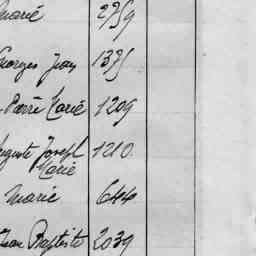 Marie 2759
Georges Jean 1335
Pierre Marie 1209
Auguste Joseph 1210
Marie
Marie 644
Jean Baptiste 2039